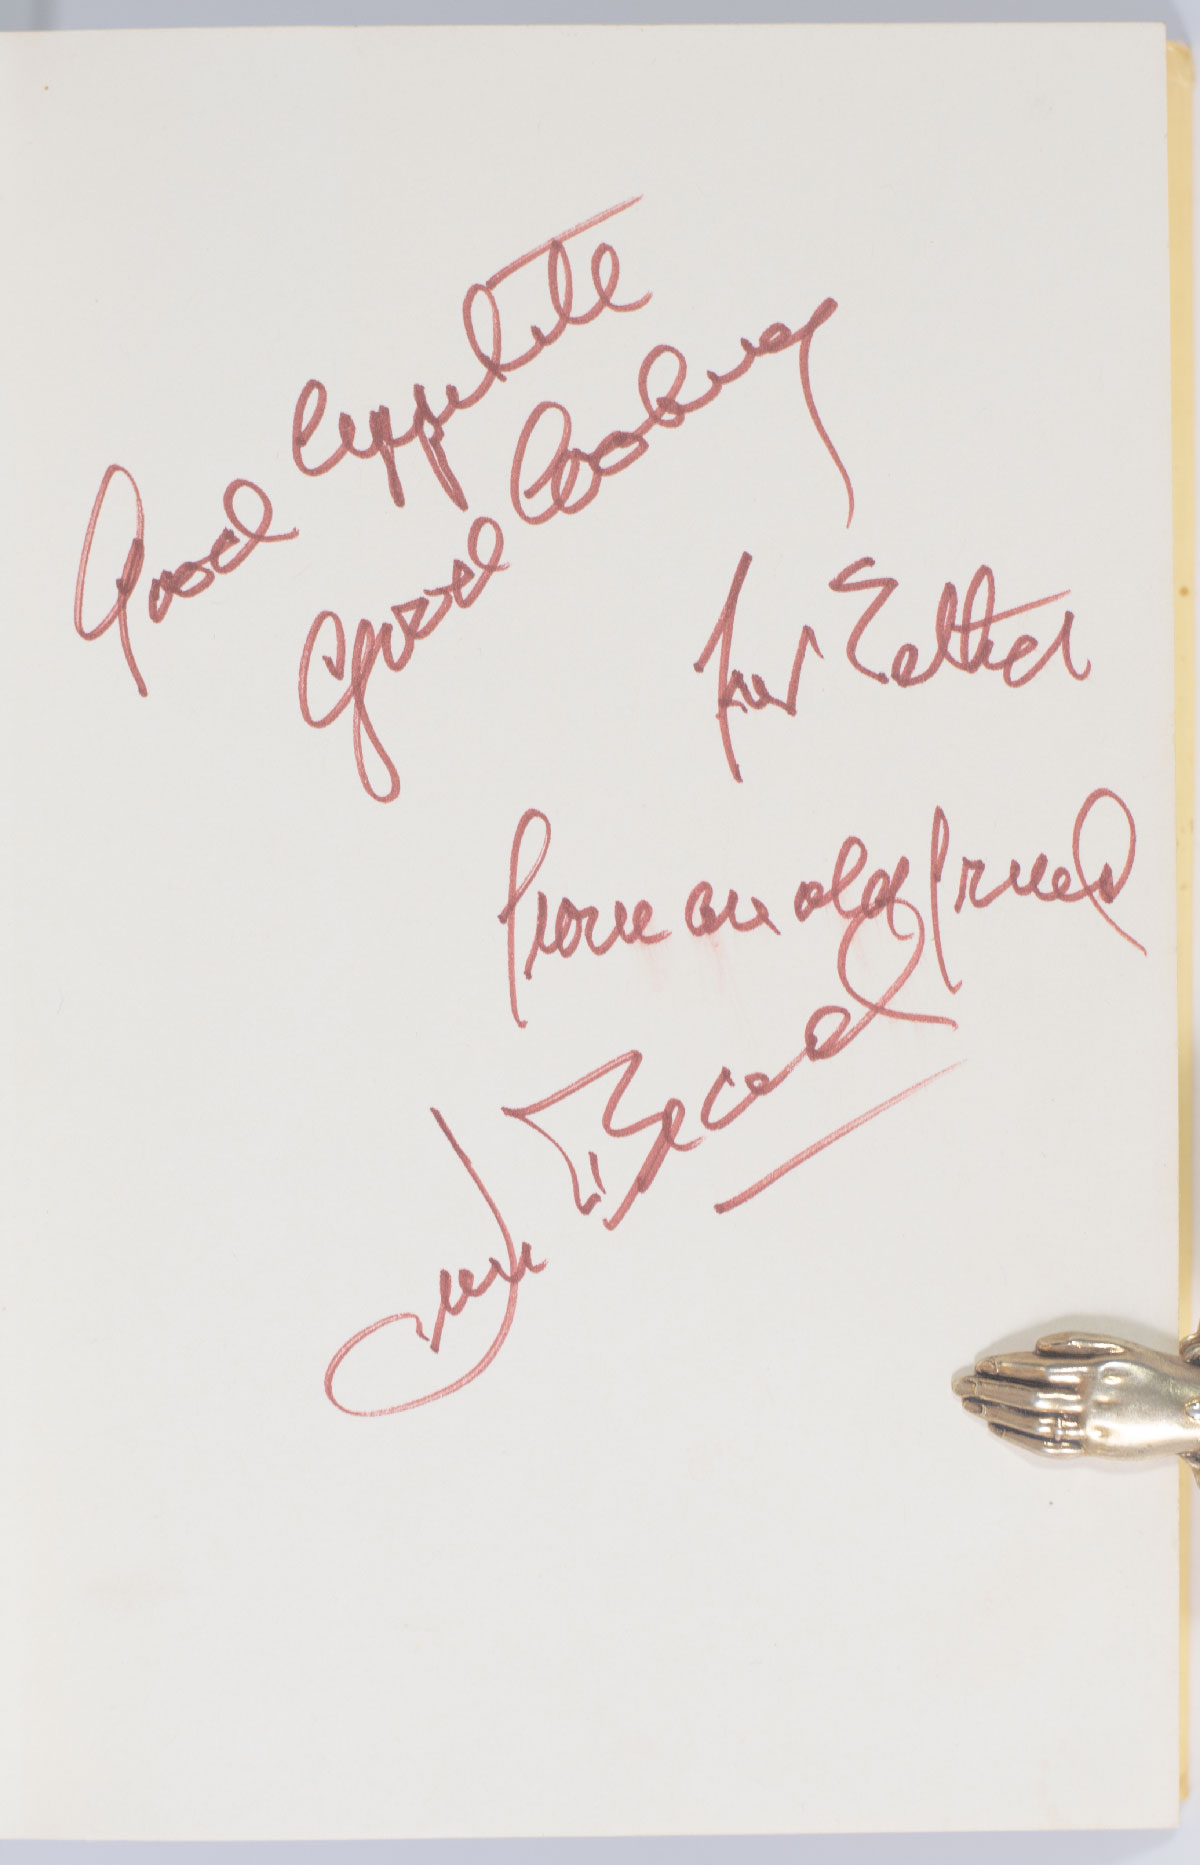 Good appetite
good Cooking
for Esther
from an old friend
Jim Beard